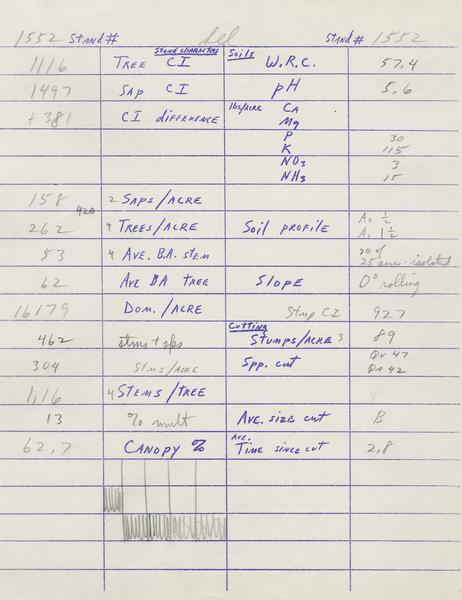 1552 STAND # STAND # 1552
STAND CHARACTERS Soils
1116 TREE CI W.R.C. 57.4
1497 SAP CI pH 5.6
+381 CI difference lbs/acre CA
Mg
P 30
K 115
NO3 3
NH3 15
158 2 SAPS/ACRE
420
262 4 TREES/ACRE Soil profile A0 ½
A1 1½
53 4 AVE. B.A. stem 20 of
25 acre-isolated
62 AVE BA TREE SLOPE 0° rolling
16179 DOM./ACRE Stmp CI 927
Cutting
462 stms + sps STUMPS/ACRE 3 89
304 STMS/ACRE Spp. cut QV 47
QA 42
1.16 4 STEMS/TREE
13 % mult AVE. SIZE CUT B
62.7 CANOPY % AVE. TIME SINCE CUT 2.8